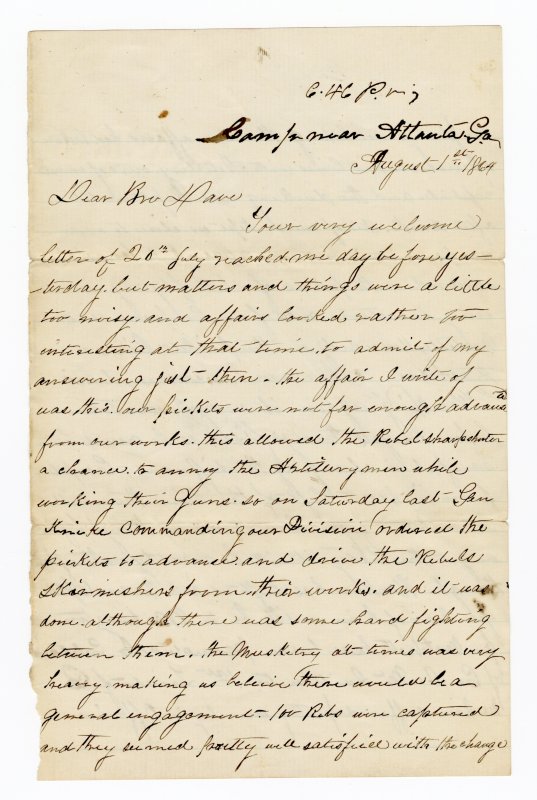 Camp near Atlanta Ga
August 1st 1864
Dear Bro Dave
Your very welcome
letter of 20th July reached me day before yes-
-terday. but matters and things were a little
too noisy. and affairs looked rather too
interesting at that time. to admit of my
answering just then. the affair I write of
was this. our pickets were not far enough advanced
from our works. this allowed the Rebel sharpshooter
a chance. to annoy the Artillerymen while
working their Guns. so on Saturday last Gen
commanding our Division ordered the
pickets to advance. and drive the Rebels
skirmishers from thier works. and it was
done. although there was some hard fighting
between them. the Musketry at times was very
heavy. making us believe there would be a
general engagement. 100 Rebs were captured
and they seemed pretty well satisfied with the change